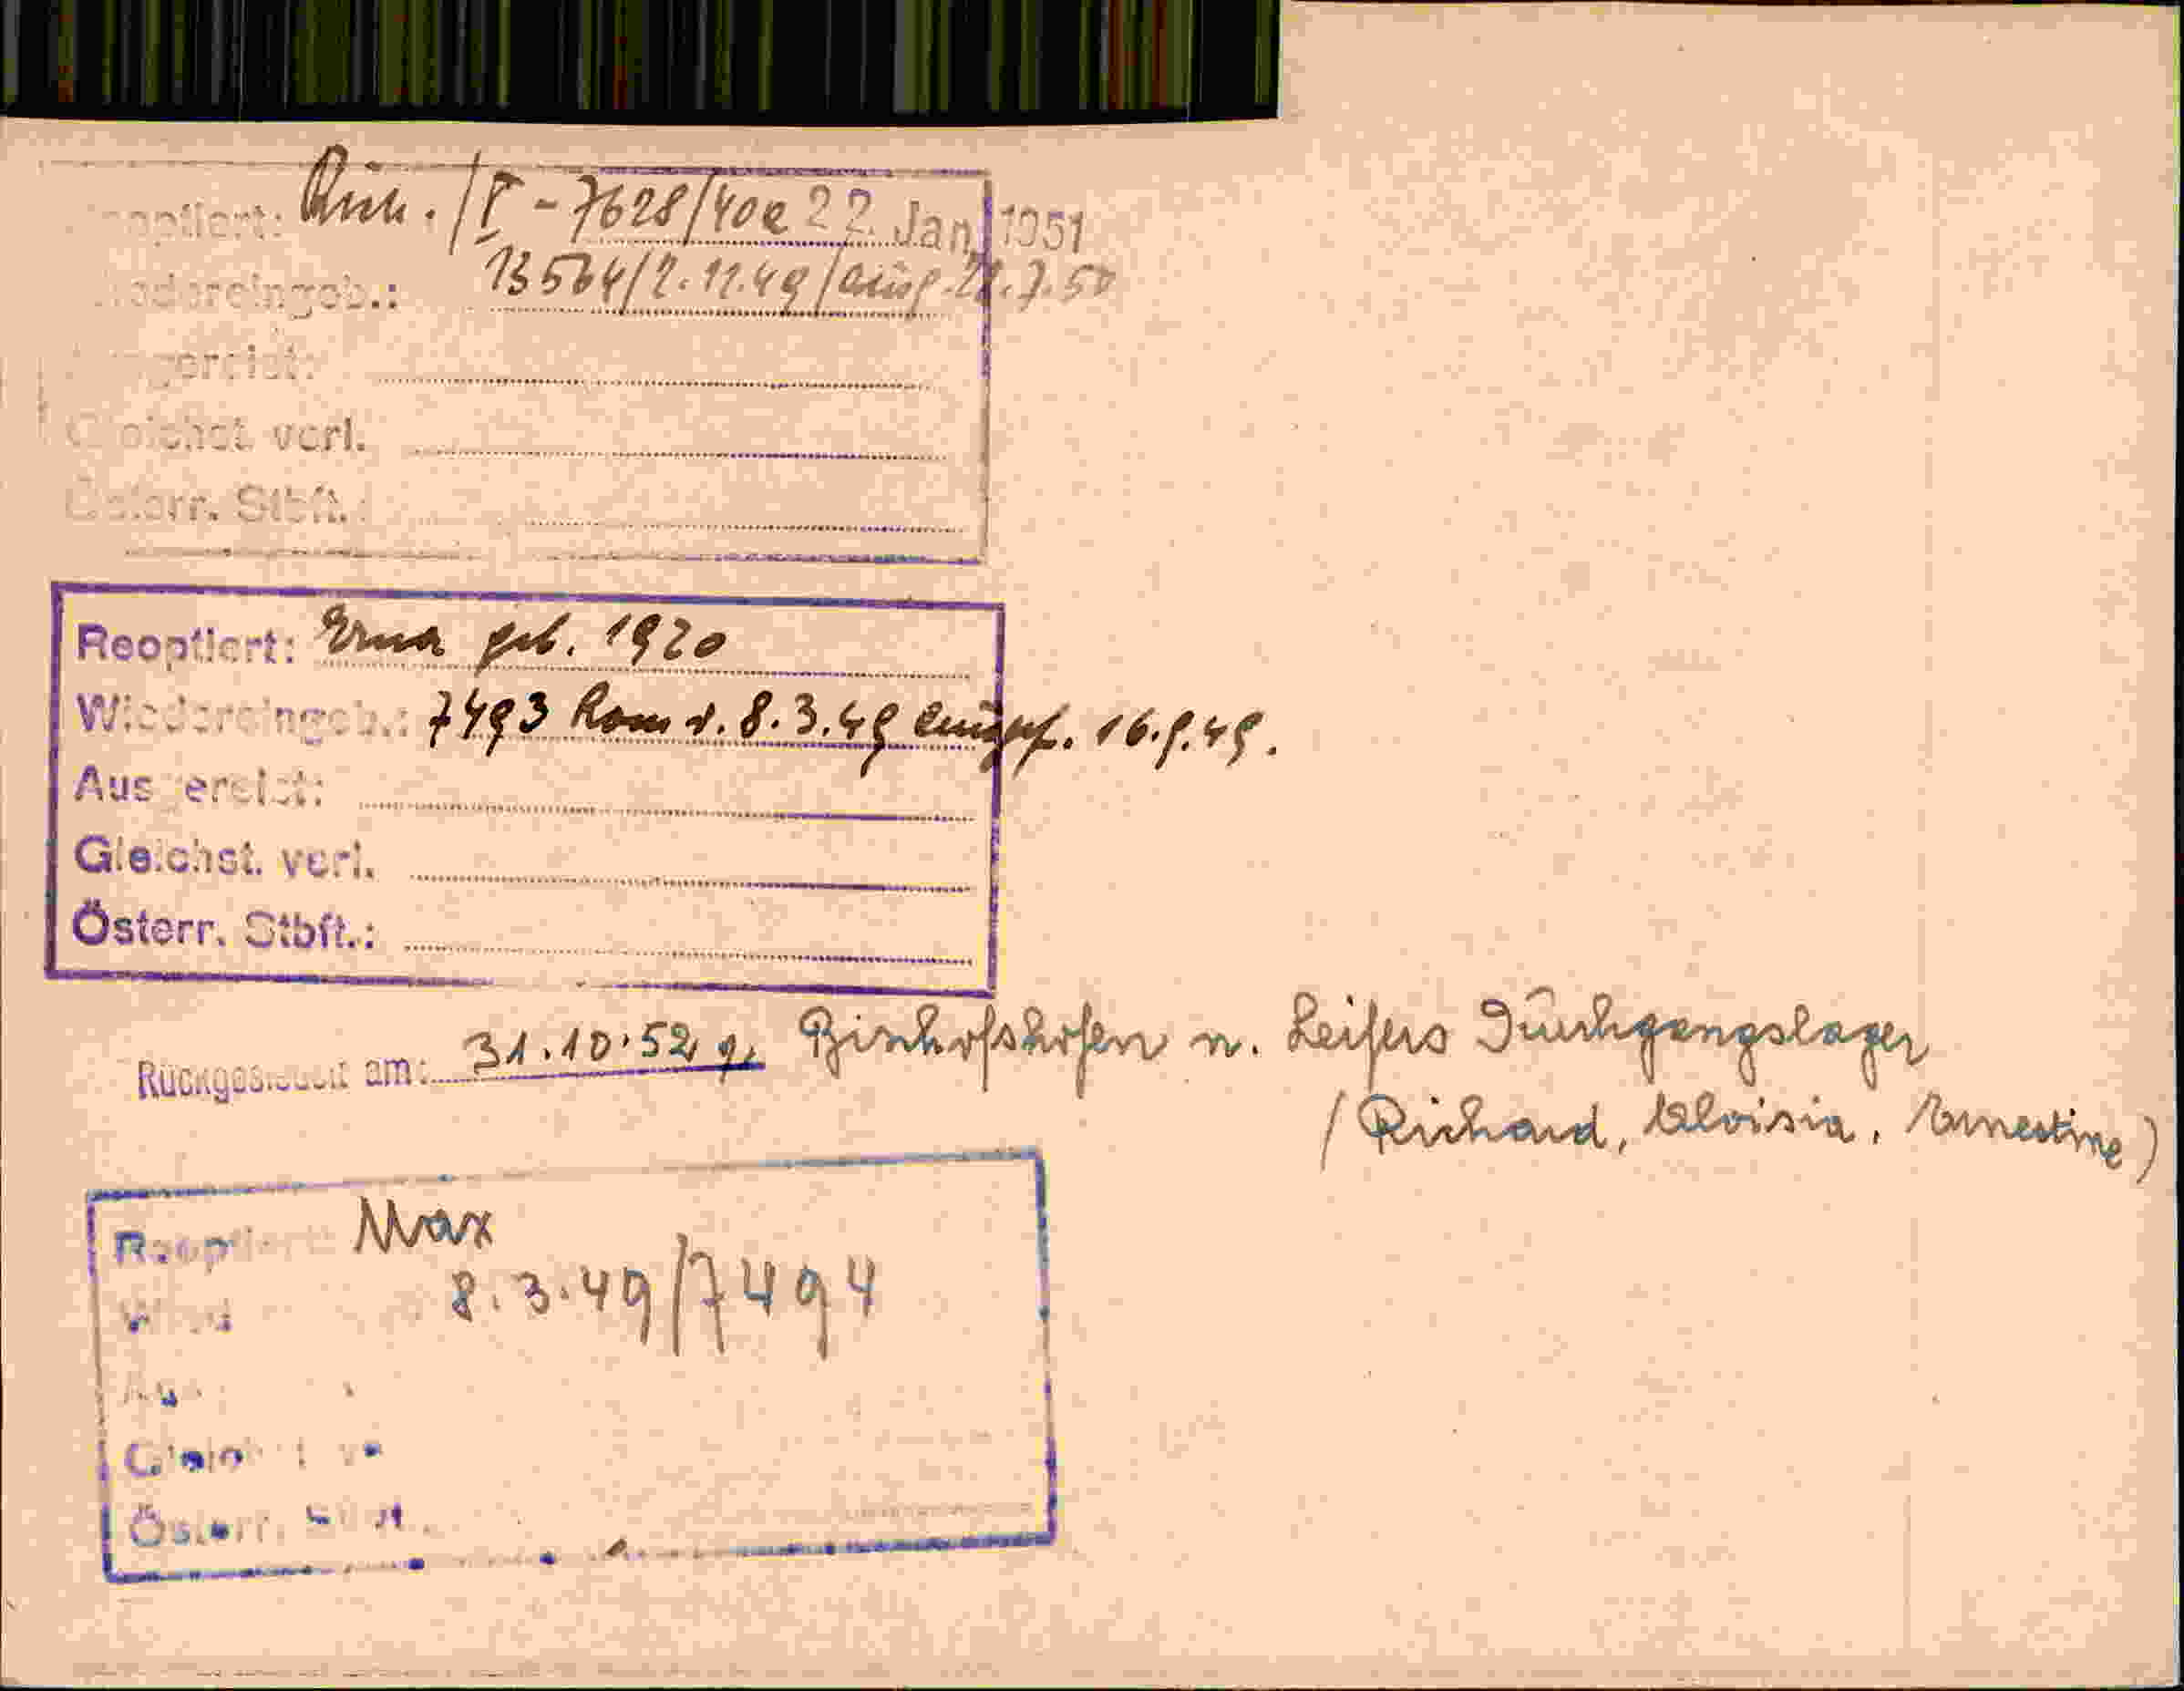 Reoptiert: Rich. / I - 7628/40e 22. Jan. 1951
Wiedereingeb.: 13564/2.11.49/ausg. 22.7.50
Ausgereist:
Gleichst. verl.
Österr. Stbft.:
Reoptiert: Erna geb. 1920
Wiedereingeb.: 7493 Rom v. 8.3.49 16.9.49.
Ausgereist:
Gleichst. verl.
Österr. Stbft.:
Rückgesiedelt am: 31.10.52 Bischofshofen n. Leifers Durchgangslager
(Richard, Aloisia, Ernestine)
Reoptiert: Max
8.3.49/7494
Gleichst. verl.
Österr. Stbft.